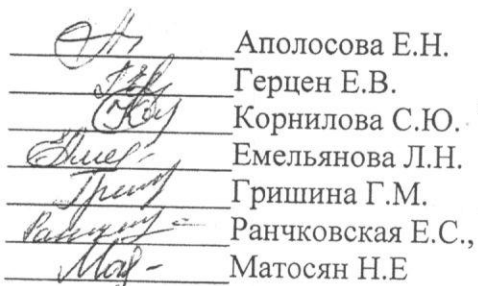 Аполосова Е.Н.
Герцен Е.В.
Корнилова С.Ю.
Емельянова Л.Н.
Гришина Г.М.
Ранчковская Е.С.,
Матосян Н.Е